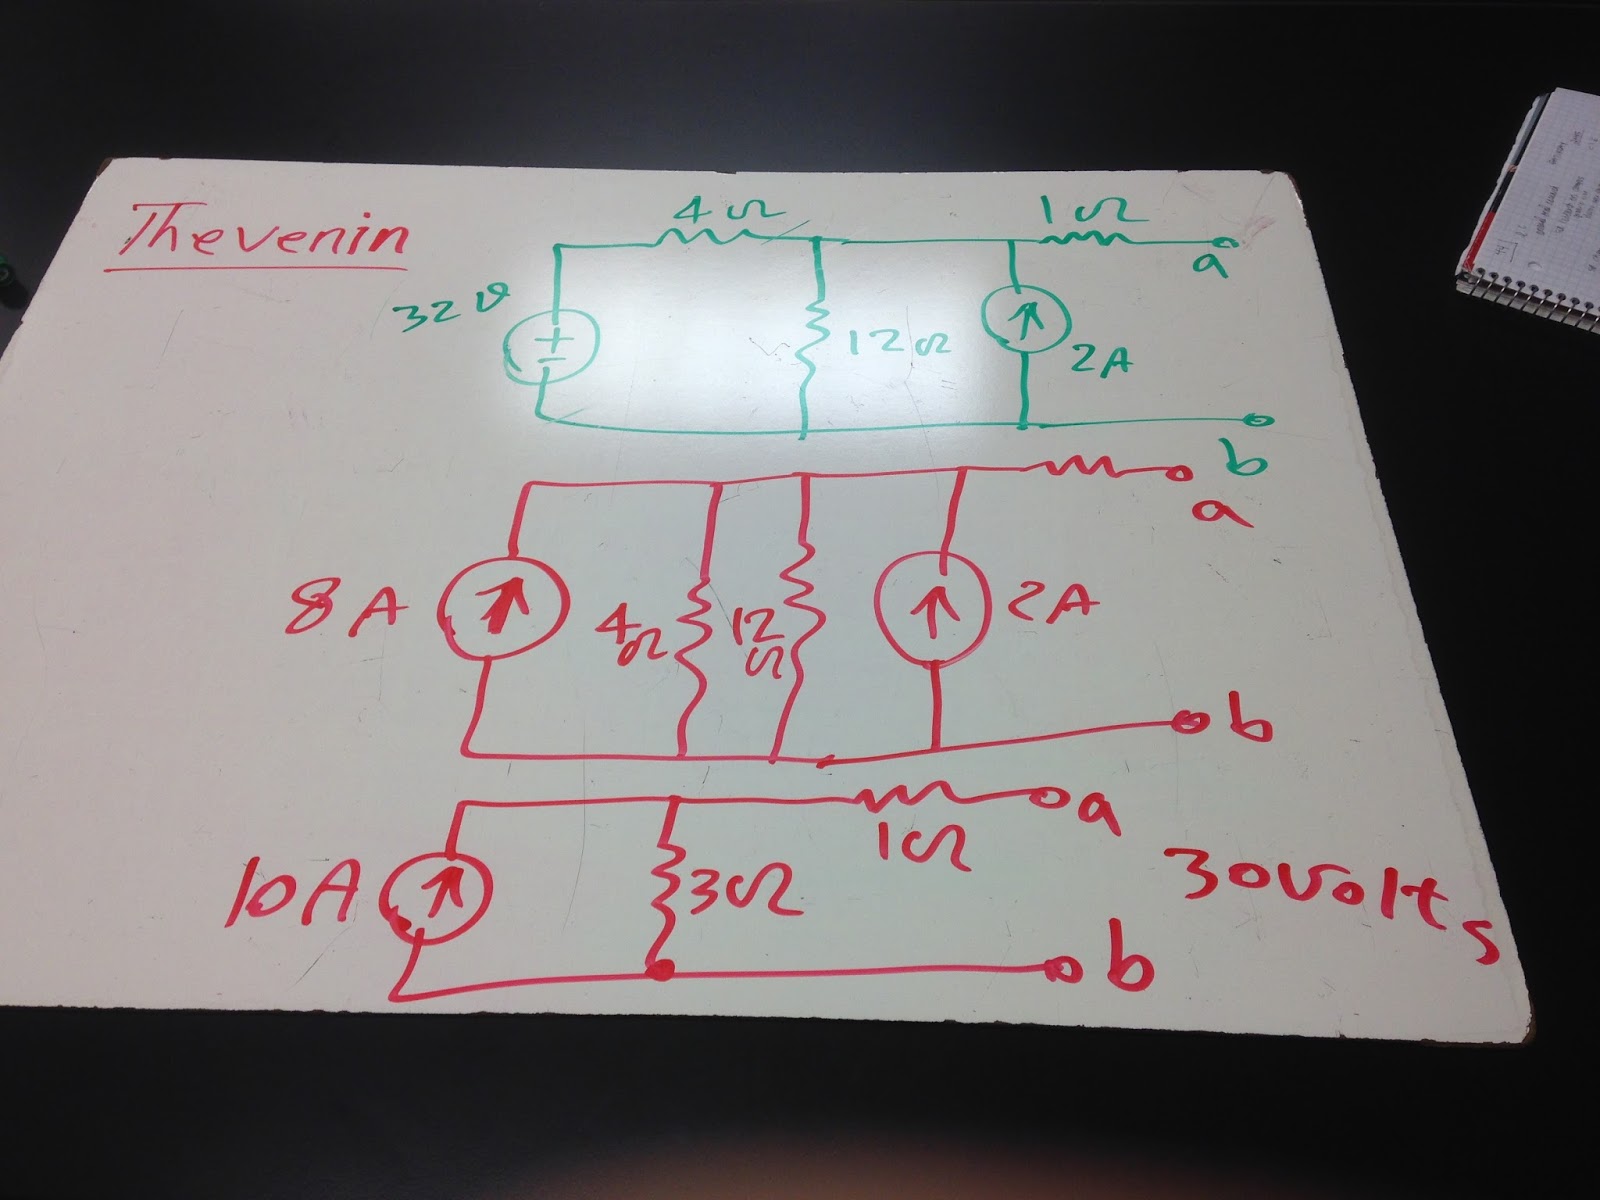 Thevenin
4Ω 1Ω
32v 12Ω 2A
a
b
8A 4Ω 12Ω 2A
a
b
10A 3Ω 1Ω
a
b
30volts